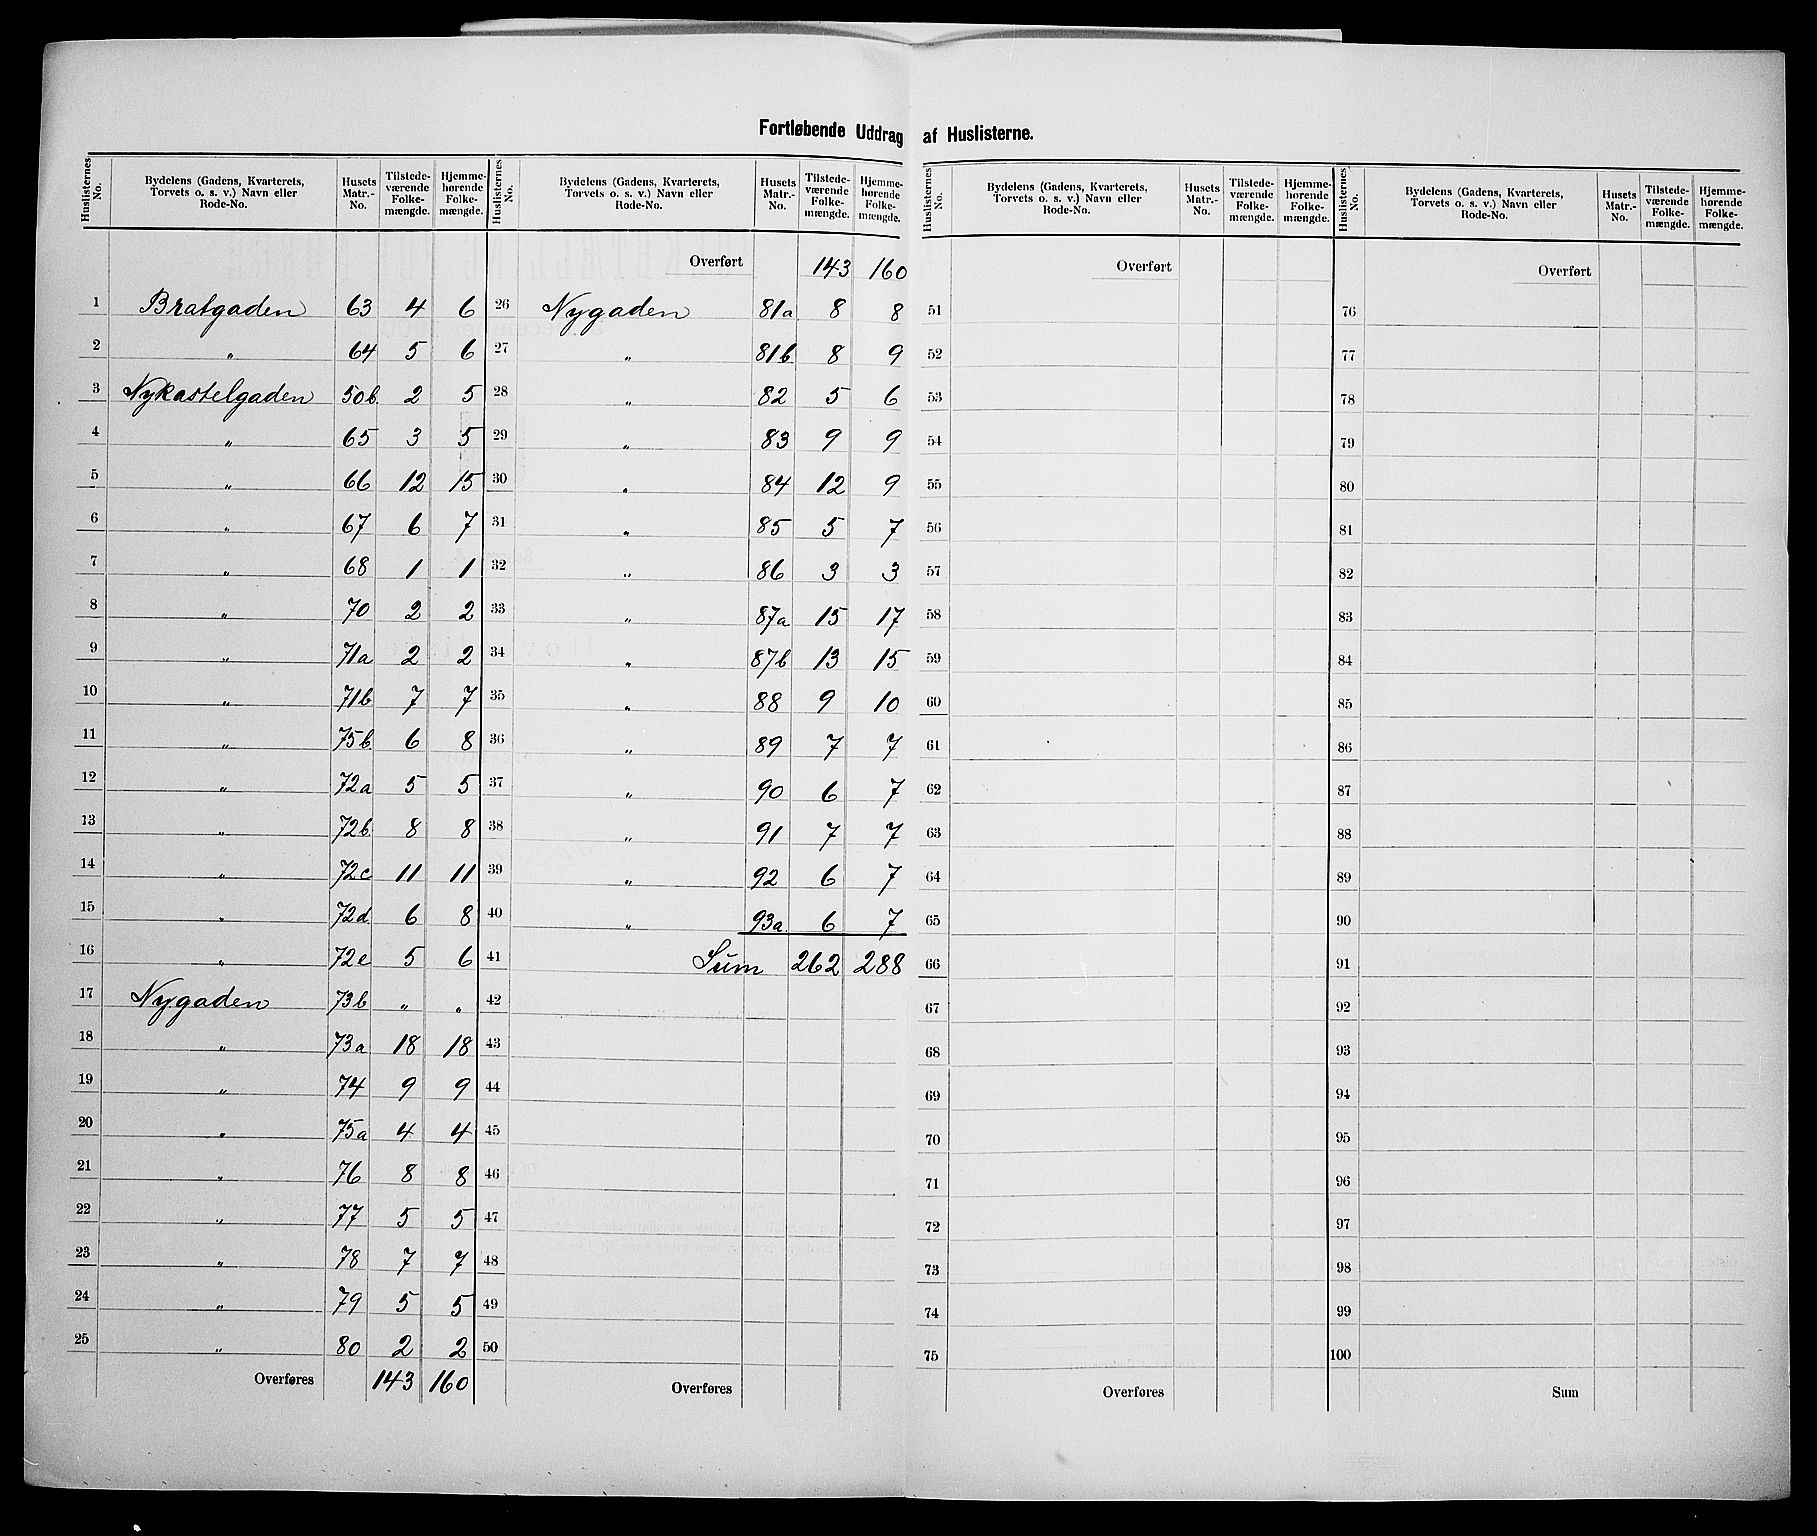 Fortløbende Uddrag af Huslisterne.
Huslisternes No. | Bydelens (Gadens, Kvarterets, Torvets o. s. v.) Navn eller Rode-No. | Husets Matr.-No. | Tilstedeværende Folkemængde. | Hjemmehørende Folkemængde.
1 Bratgaden 63 4 6
2 „ 64 5 6
3 Nykastelgaden 50b 2 5
4 „ 65 3 5
5 „ 66 12 15
6 „ 67 6 7
7 „ 68 1 1
8 „ 70 2 2
9 „ 71a 2 2
10 „ 71b 7 7
11 „ 75b 6 8
12 „ 72a 5 5
13 „ 72b 8 8
14 „ 72c 11 11
15 „ 72d 6 8
16 „ 72e 5 6
17 Nygaden 73b „ „
18 „ 73a 18 18
19 „ 74 9 9
20 „ 75a 4 4
21 „ 76 8 8
22 „ 77 5 5
23 „ 78 7 7
24 „ 79 5 5
25 „ 80 2 2
Overføres 143 160
Huslisternes No. | Bydelens (Gadens, Kvarterets, Torvets o. s. v.) Navn eller Rode-No. | Husets Matr.-No. | Tilstedeværende Folkemængde. | Hjemmehørende Folkemængde.
Overført 143 160
26 Nygaden 81a 8 8
27 „ 81b 8 9
28 „ 82 5 6
29 „ 83 9 9
30 „ 84 12 9
31 „ 85 5 7
32 „ 86 3 3
33 „ 87a 15 17
34 „ 87b 13 15
35 „ 88 9 10
36 „ 89 7 7
37 „ 90 6 7
38 „ 91 7 7
39 „ 92 6 7
40 „ 93a 6 7
41 Sum 262 288
42
43
44
45
46
47
48
49
50
Overføres
Huslisternes No. | Bydelens (Gadens, Kvarterets, Torvets o. s. v.) Navn eller Rode-No. | Husets Matr.-No. | Tilstedeværende Folkemængde. | Hjemmehørende Folkemængde.
Overført
51
52
53
54
55
56
57
58
59
60
61
62
63
64
65
66
67
68
69
70
71
72
73
74
75
Overføres
Huslisternes No. | Bydelens (Gadens, Kvarterets, Torvets o. s. v.) Navn eller Rode-No. | Husets Matr.-No. | Tilstedeværende Folkemængde. | Hjemmehørende Folkemængde.
Overført
76
77
78
79
80
81
82
83
84
85
86
87
88
89
90
91
92
93
94
95
96
97
98
99
100
Sum